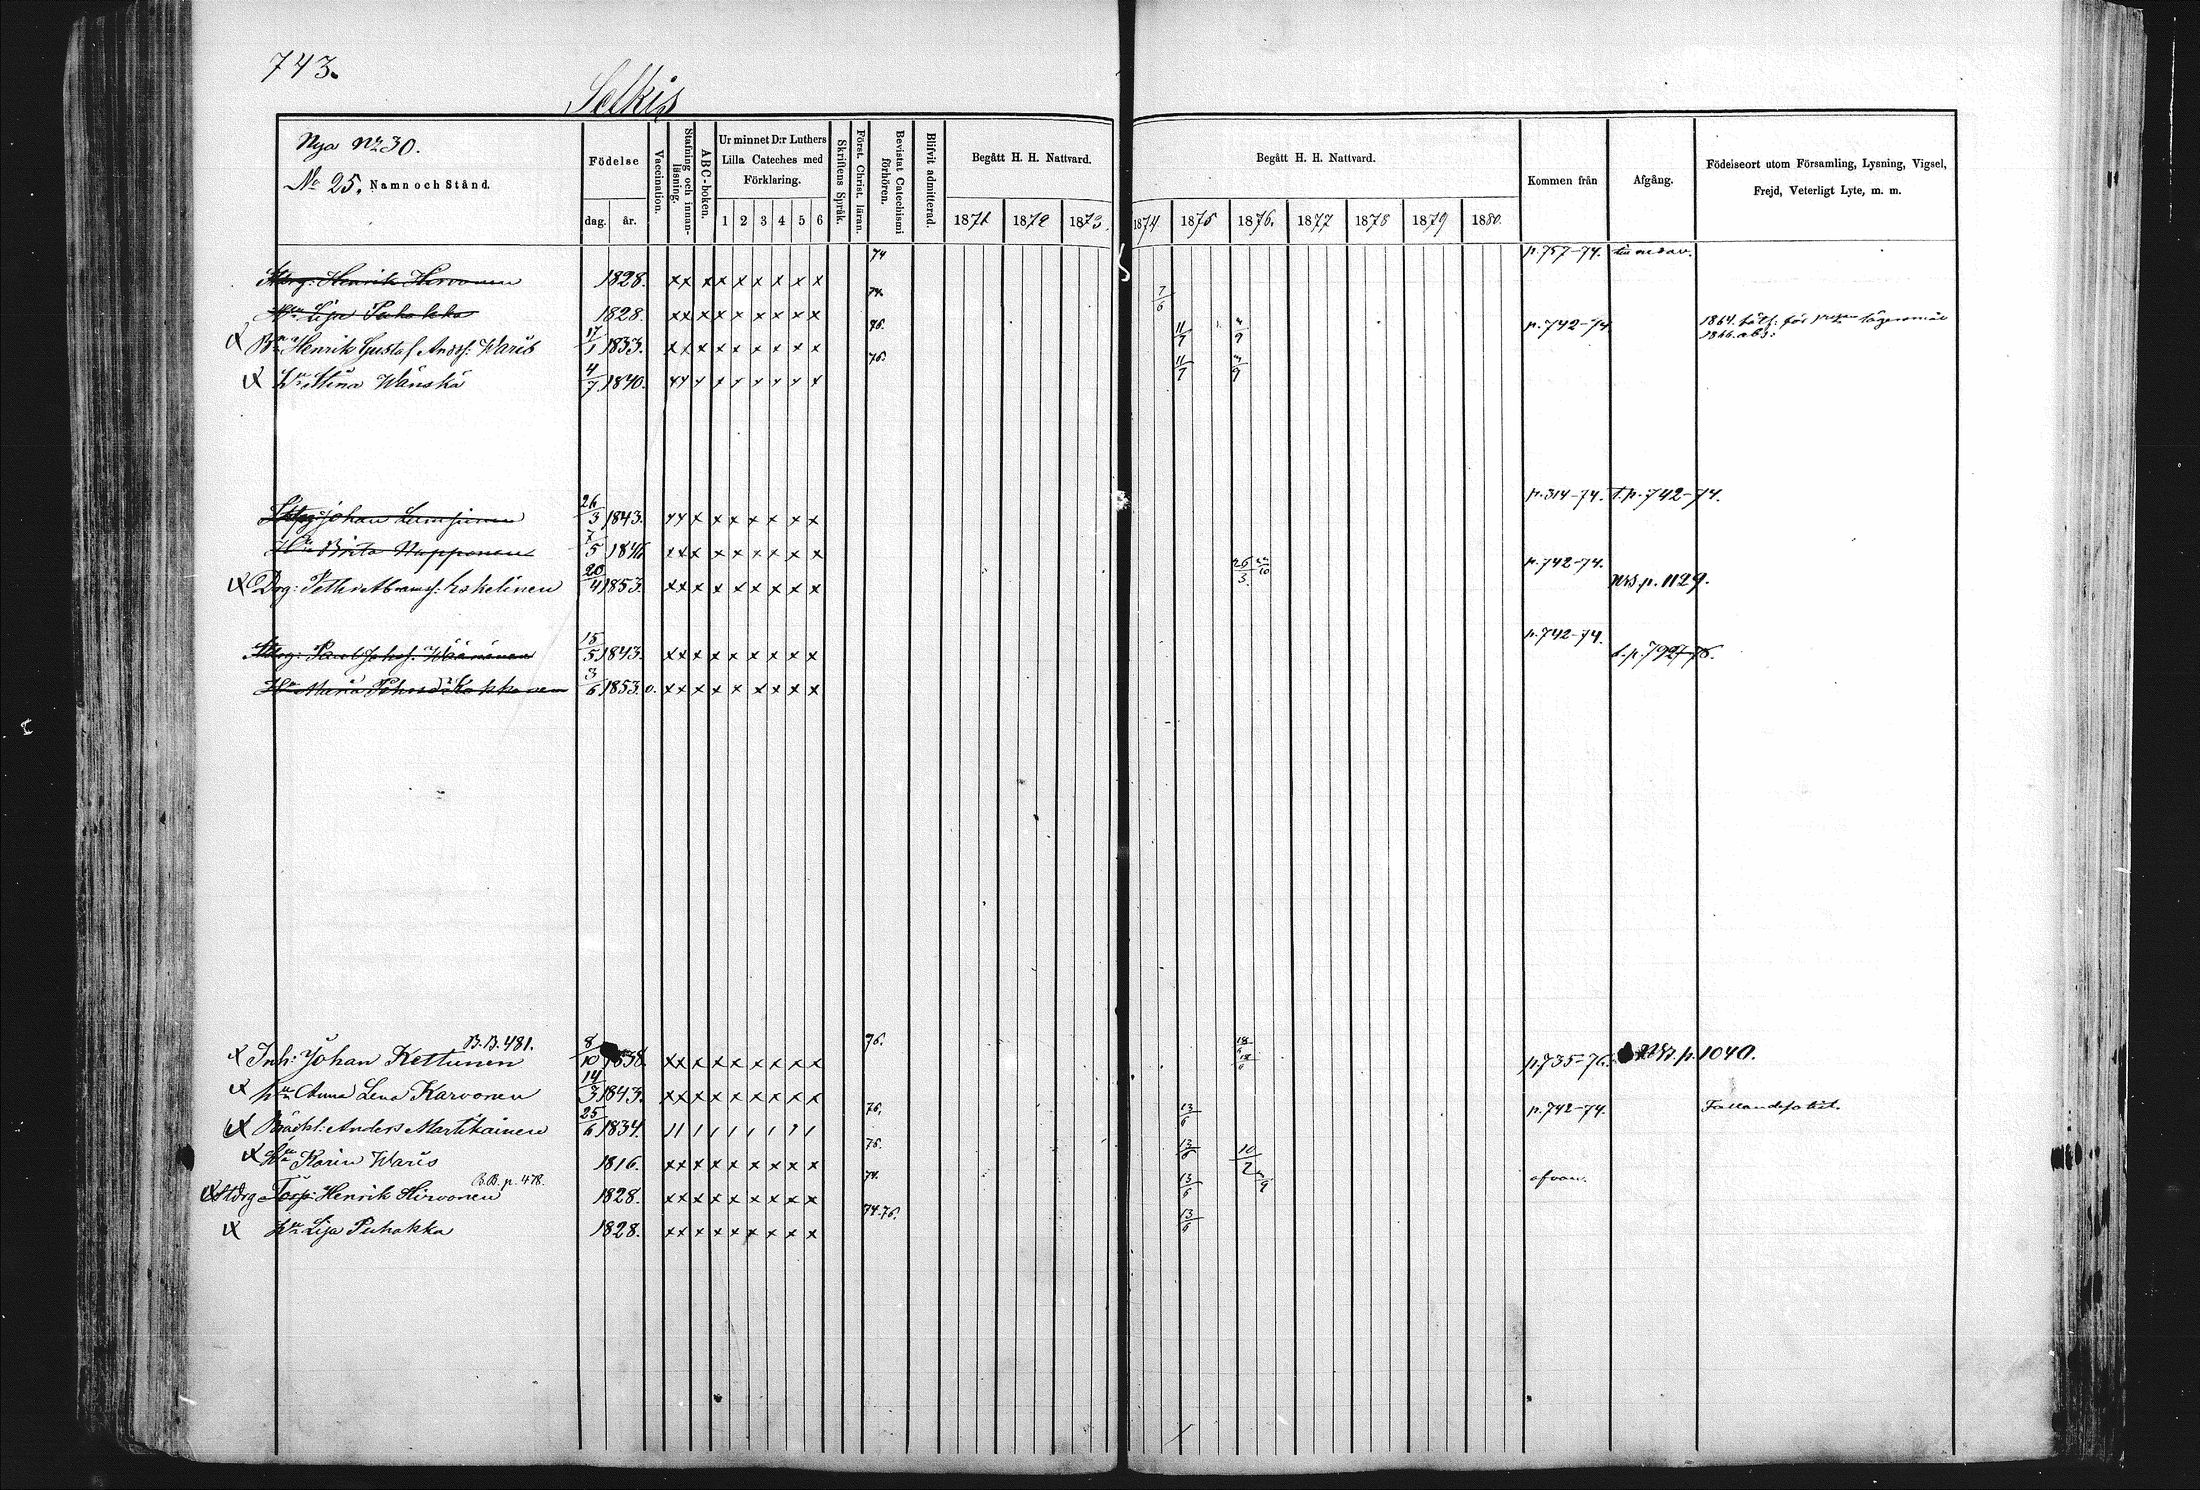 743.
Selkis
Nya No 30.
No 25. Namn och Stånd.
Födelse
dag. år.
Vaccination.
Stafning och innanläsning.
ABC-boken.
Ur minnet D:r Luthers Lilla Cateches med Förklaring.
1 2 3 4 5 6
Skriftens Språk.
Först. Christ. läran.
Bevistat Catechismi förhören.
Blifvit admitterad.
Begått H. H. Nattvard.
1871 1872 1873.
Begått H. H. Nattvard.
1874 1875 1876. 1877 1878 1879 1880.
Kommen från
Afgång.
Födelseort utom Församling, Lysning, Vigsel, Frejd, Veterligt Lyte, m. m.
Henrik Hirvonen 1828. x x x x x x x x x 74 p. 757-74.
Hu Lisa Puhakka 1828. x x x x x x x x x 74. 7/6
Henrik Gustaf Andsf: Waris 17/1 1833. x x x x x x x x x 76. 11/7 p. 742-74 1864. för lägersmål
1866. abs:
Hu Stina Wänskä 4/7 1840. x x x x x x x x x 76. 11/7
Johan 26/3 1843. x x x x x x x x x p. 314-74. t. p. 742-74.
Hu Brita Napponen 7/5 x x x x x x x x x
Drg: Petter Abramsf: Eskelinen 20/4 1853. x x x x x x x x x 26/3. p. 742-74. p. 1129.
Väänänen 15/5 1843. x x x x x x x x x p. 742-74. t. p. 792-76.
Hu Maria Kakkonen 3/6 1853. o. x x x x x x x x x
B.B. 481.
Inh: Johan Kettunen 8/10 1838. x x x x x x x x x 76. 18/6 p. 735-76. p. 1040.
Hu Anna Lena Karvonen 14/3 1843. x x x x x x x x x 18/6
Anders Martikainen 25/6 1834. 76. 13/6 p. 742-74. Fallandesot
Hu Karin Waris 1816. x x x x x x x x x 76. 13/6 10/2
B.B. p. 478.
Henrik Hirvonen 1828. x x x x x x x x x 74. 13/6 ofvan.
Hu Lisa Puhakka 1828. x x x x x x x x x 74-76. 13/6